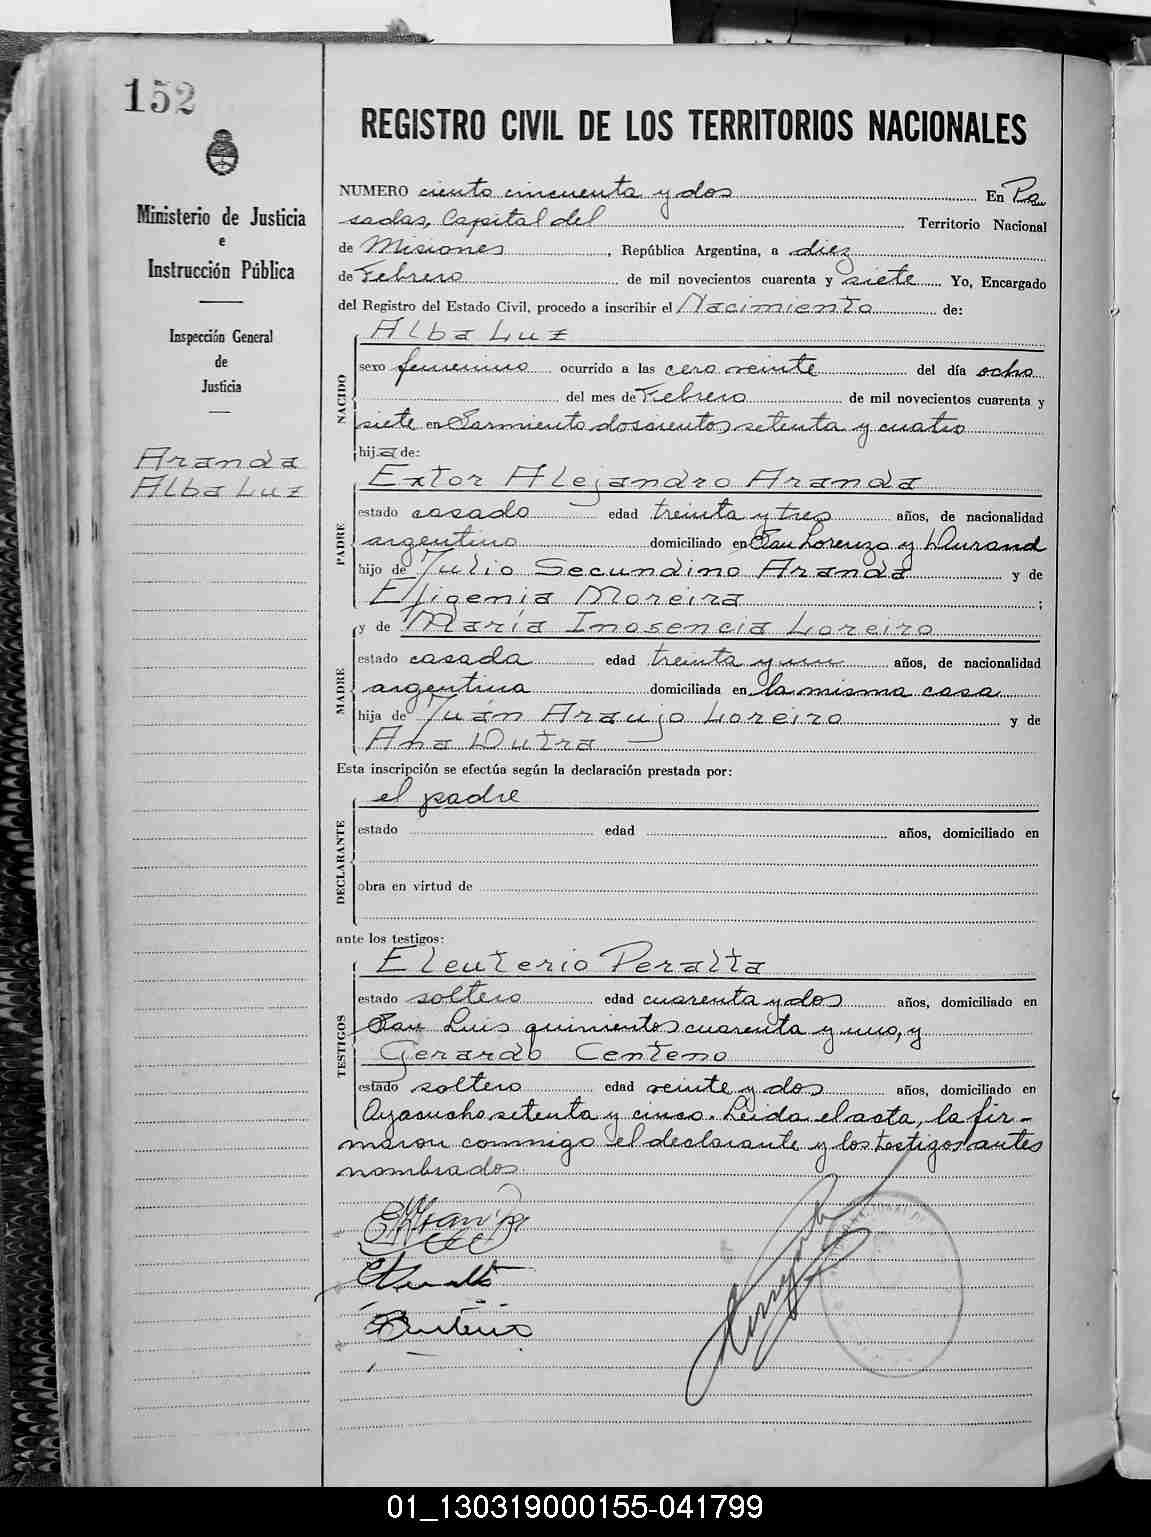 152
Ministerio de Justicia
e
Instrucción Pública
Inspección General
de
Justicia
Aranda
Alba Luz
REGISTRO CIVIL DE LOS TERRITORIOS NACIONALES
NUMERO ciento cincuenta y dos En Po
sadas, Capital del Territorio Nacional
de Misiones, República Argentina, a diez
de Febrero de mil novecientos cuarenta y siete Yo, Encargado
del Registro del Estado Civil, procedo a inscribir el Nacimiento de:
NACIDO
Alba Luz
sexo femenino ocurrido a las cero veinte del día ocho
del mes de Febrero de mil novecientos cuarenta y
siete en Sarmiento doscientos setenta y cuatro
hija de:
PADRE
Extor Alejandro Aranda
estado casado edad treinta y tres años, de nacionalidad
argentino domiciliado en San Lorenzo y Durand
hijo de Julio Secundino Aranda y de
Efigenia Moreira;
MADRE
y de María Inosencia Loreiro
estado casada edad treinta y un años, de nacionalidad
argentina domiciliada en la misma casa
hija de Juán Araujo Loreiro y de
Ana Dutra
Esta inscripción se efectúa según la declaración prestada por:
DECLARANTE
el padre
estado edad años, domiciliado en
obra en virtud de
ante los testigos:
TESTIGOS
Eleuterio Peralta
estado soltero edad cuarenta y dos años, domiciliado en
San Luis quinientos cuarenta y uno, y
Gerardo Centeno
estado soltero edad veinte y dos años, domiciliado en
Ayacucho setenta y cinco. Leida el acta, la fir-
maron conmigo el declarante y los testigos antes
nombrados
01_130319000155-041799